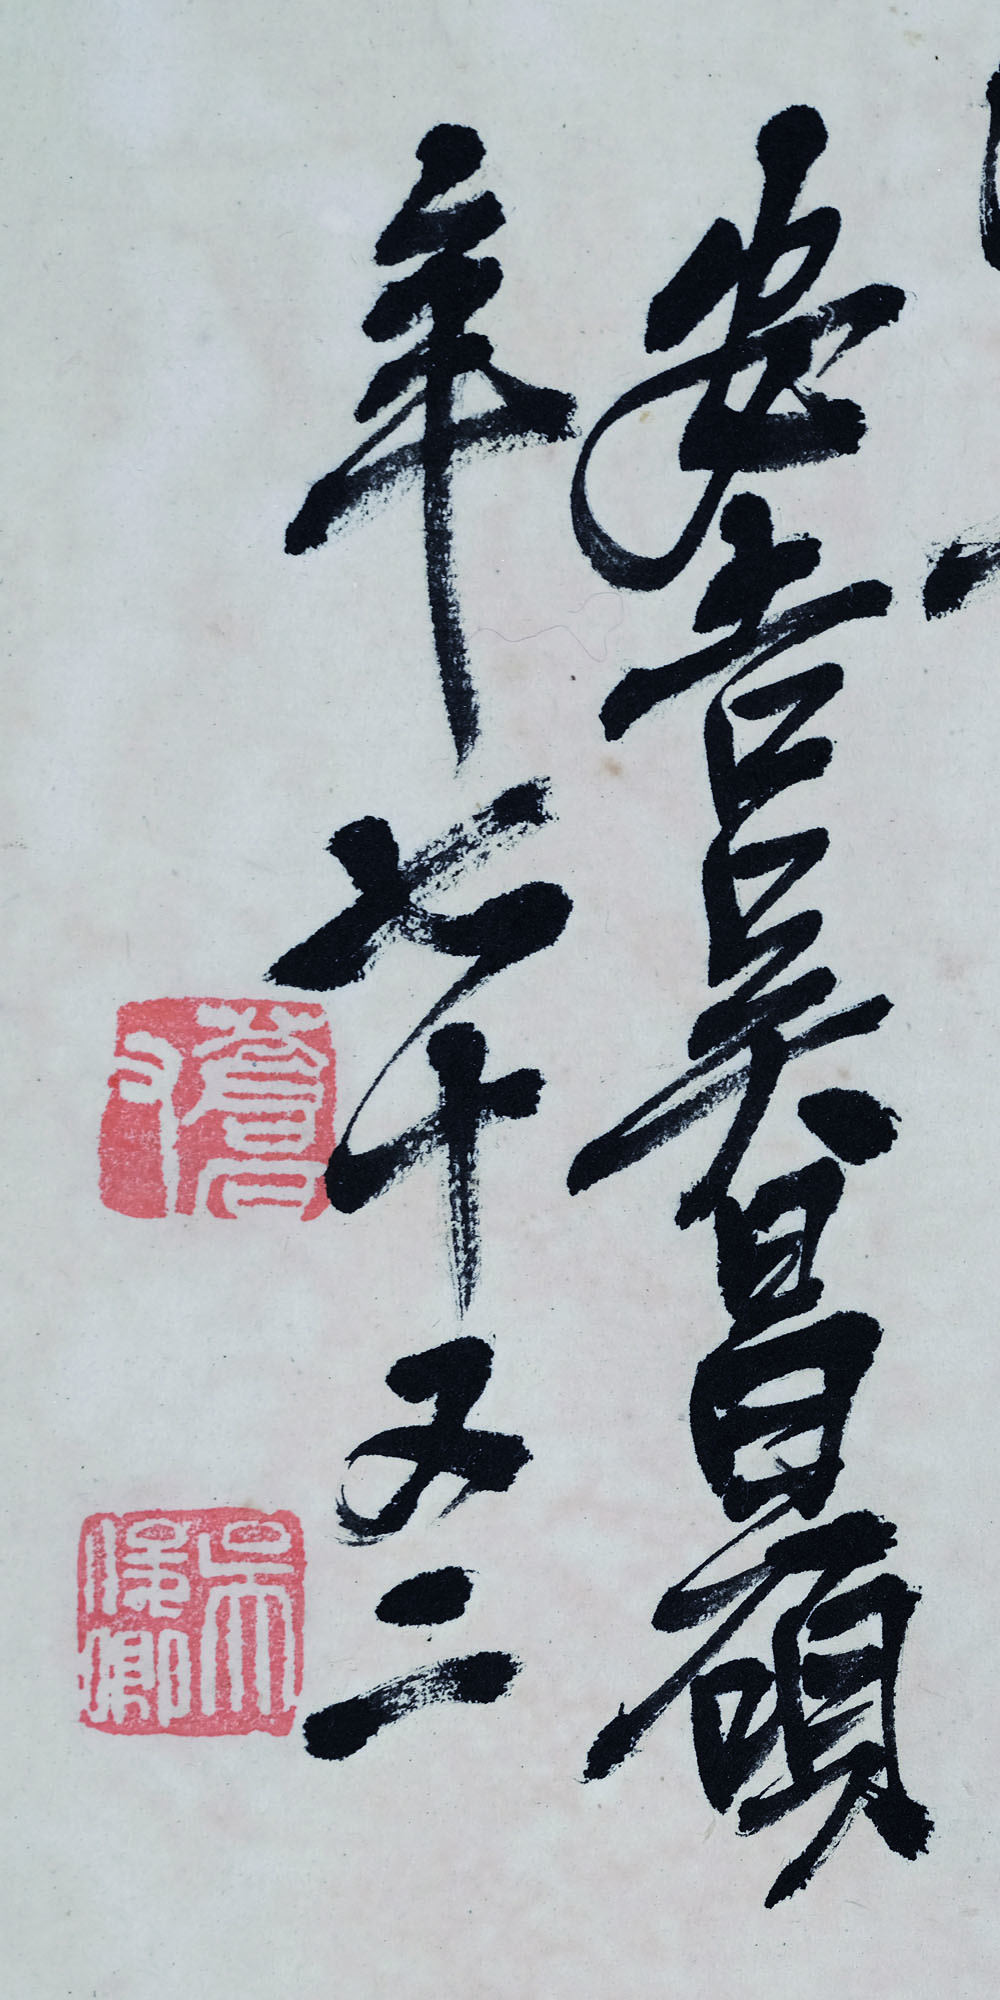 安吉吳昌碩
年七十又二
倉石
吳俊卿